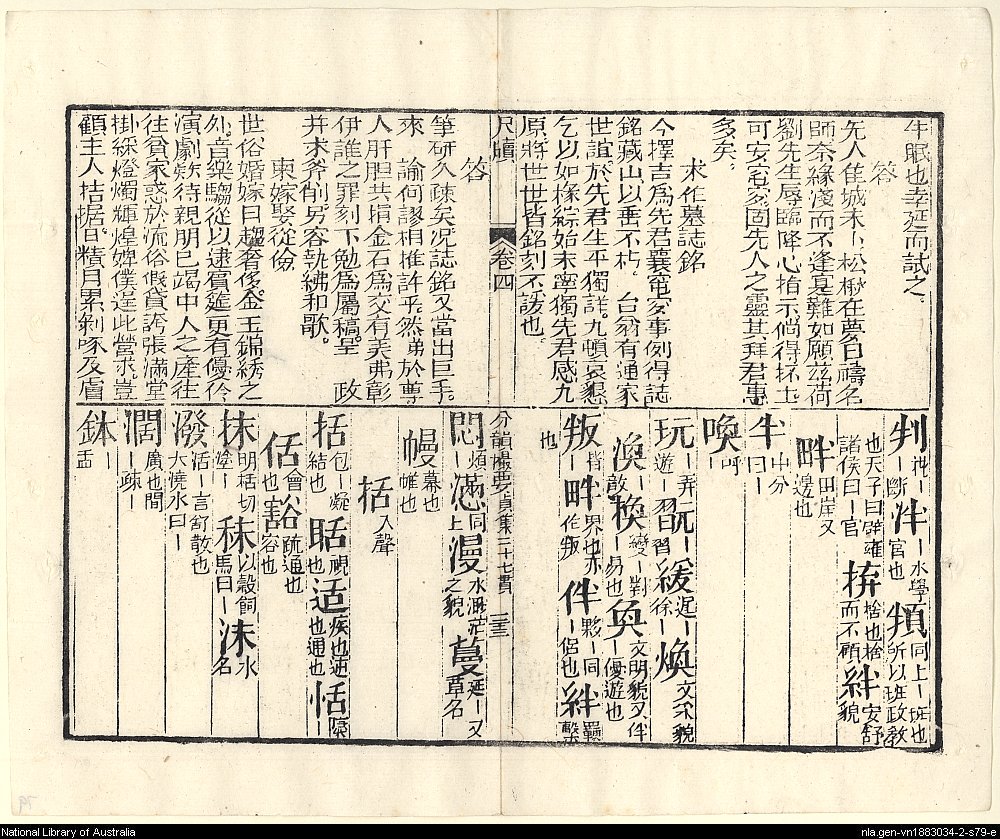 牛眠也幸延而試之
答
先人佳城未卜松楸在夢日禱名
師奈緣淺而不逢夏難如願茲荷
劉先生辱臨降心指示倘得抔土
可安窀穸固先人之靈其拜君惠
多矣
求作墓誌銘
今擇吉爲先君襄窀穸事例得誌
銘藏山以垂不朽 台翁有通家
世誼於先君生平獨詳九頓哀懇
乞以如椽綜始末寧獨先君感九
原將世世皆銘刻不諼也
尺牘 卷四
答
筆硏久疎矣况誌銘又當出巨手
來 諭何謬相推許乎然弟於尊
人肝胆共揹金石爲交有美弗彰
伊誰之罪刻下勉爲屬稿呈 政
并求斧削另容執紼和歌
柬嫁娶從儉
世俗婚嫁曰趨奢侈金玉錦綉之
外音樂騶從以逮賓筵更有優伶
演劇欵待親朋已竭中人之產往
往貧家惑於流俗假貸誇張滿堂
掛綵燈燭輝煌婢僕逞此營求豈
顧主人拮据日精月累剝啄及膚
判
泮 ー水學官也 頖 同上ー班也所以班政教
也天子曰辟雍諸侯曰ー官 拚 捨也捨而不顧 絆 安舒貌
畔 田岸又邊也
半 中分曰ー
喚 ー呼
玩 ー弄遊ー 翫 ー習 緩 遲ー徐ー 煥 文采貌
渙 散 換 變ー對ー易也 奐 文明貌又伴ー優遊也
叛 背也 畔 界也亦作叛 伴 夥ー同ー侶也 絆 羈繫
分韻撮要貞集三十七貫 三三
悶 煩ー 懣 同上 漫 水瀰茫之貌 蔓 延ー又草名
幔 幕也帷也
括 入聲
括 包ー凝結也 聒 視也 适 疾也迊也通也 恬
佸 會也 豁 疏通也容也
抹 明括切塗ー 秣 以穀飼馬曰ー 沬 水名
潑 大澆水曰ー活ー言舒散也
濶 廣也間ー疎ー
鉢 ー盂
National Library of Australia
nla.gen-vn1883034-2-s79-e